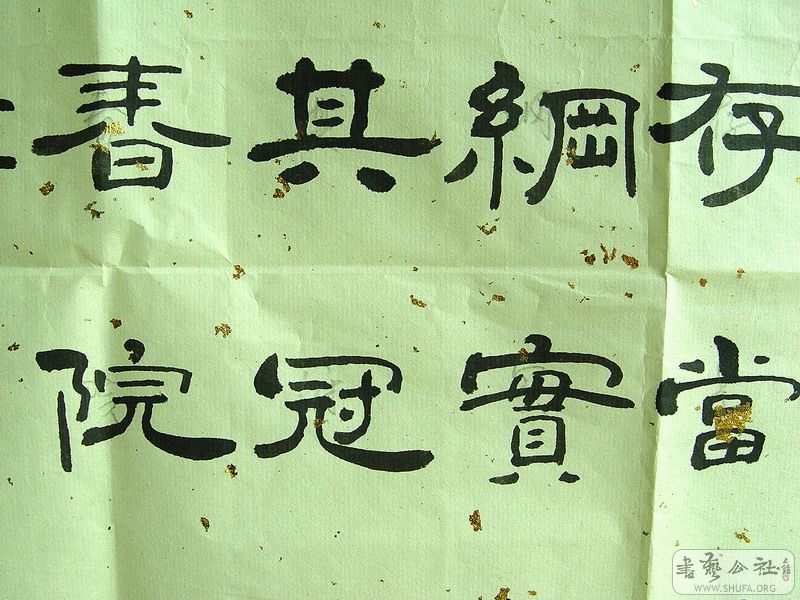 存當
綱實
其冠
書院
書藝公社
WWW.SHUFA.ORG